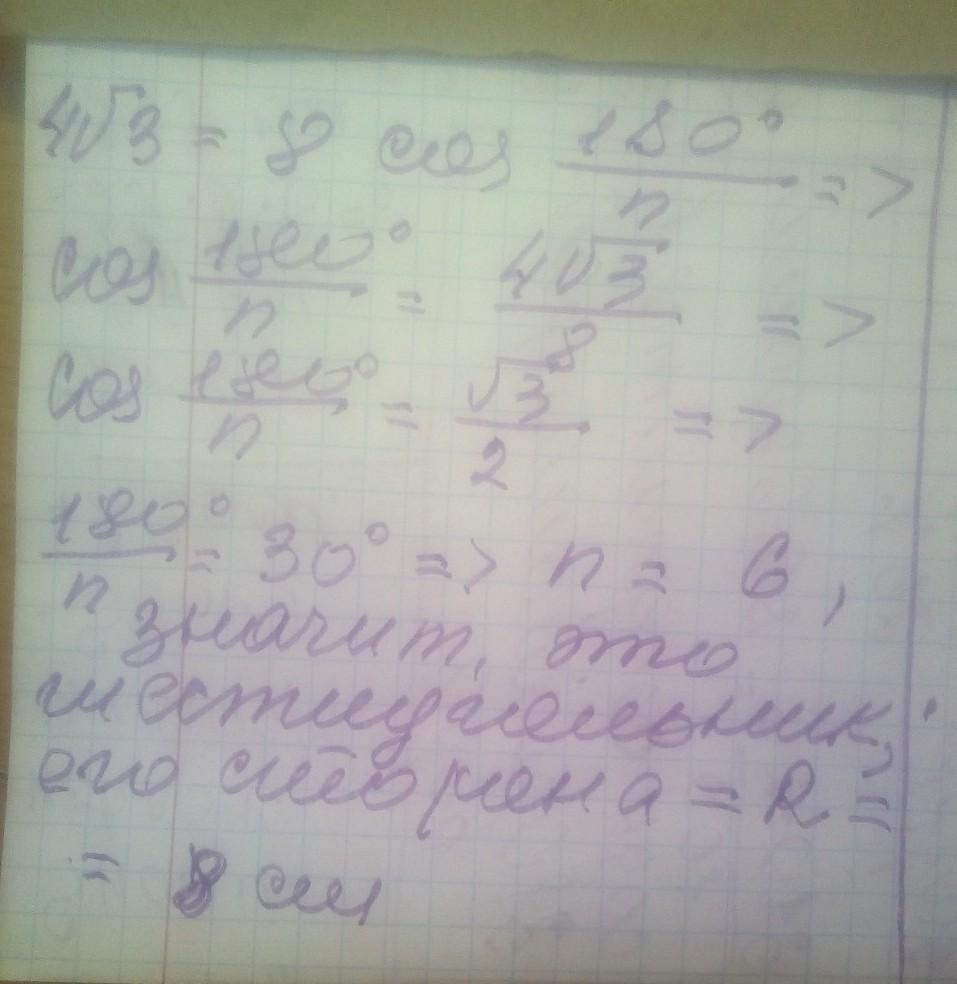 4√3 = 8 cos 180°/n =>
cos 180°/n = 4√3/8 =>
cos 180°/n = √3/2 =>
180°/n = 30° => n = 6,
значит, это
шестиугольник,
его сторона a = R =
= 8 см